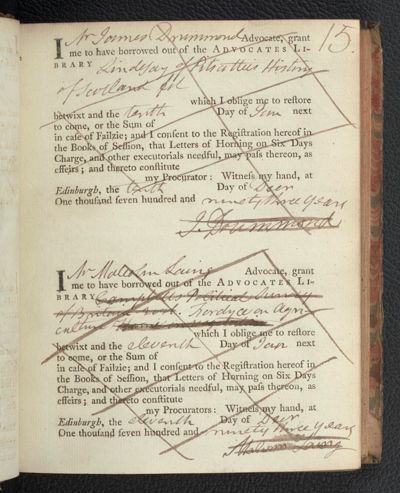 15.
I Mr James Drummond Advocate, grant
me to have borrowed out of the ADVOCATES LI-
BRARY Lindsay of Pitscotties History
of Scotland fol
which I oblige me to reſtore
betwixt and the tenth Day of Jan next
to come, or the Sum of
in caſe of Failzie; and I conſent to the Regiſtration hereof in
the Books of Seſſion, that Letters of Horning on Six Days
Charge, and other executorials needful, may paſs thereon, as
effeirs; and thereto conſtitute
my Procurator: Witneſs my hand, at
Edinburgh, the tenth Day of Decr
One thouſand ſeven hundred and ninety three years
J. Drummond
I Mr Malcolm Laing Advocate, grant
me to have borrowed out of the ADVOCATES LI-
BRARY Campbells Political Survey
of Britain Fordyce on Agri-
culture
which I oblige me to reſtore
betwixt and the eleventh Day of Jan next
to come, or the Sum of
in caſe of Failzie; and I conſent to the Regiſtration hereof in
the Books of Seſſion, that Letters of Horning on Six Days
Charge, and other executorials needful, may paſs thereon, as
effeirs; and thereto conſtitute
my Procurators: Witneſs my hand, at
Edinburgh, the eleventh Day of Decr
One thouſand ſeven hundred and ninety three years
Malcolm Laing